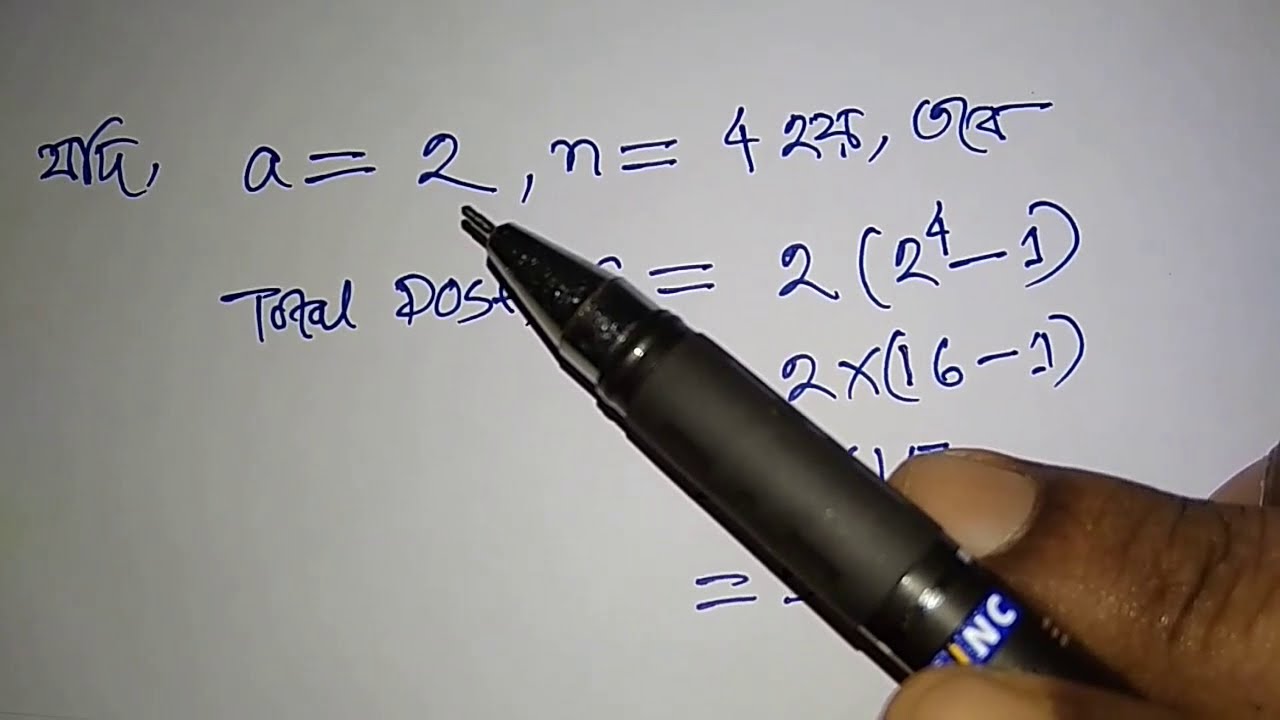 যদি, a = 2, n = 4 হয়, তবে
Total = 2 (2⁴ - 1)
2 × (16 - 1)
=
INC